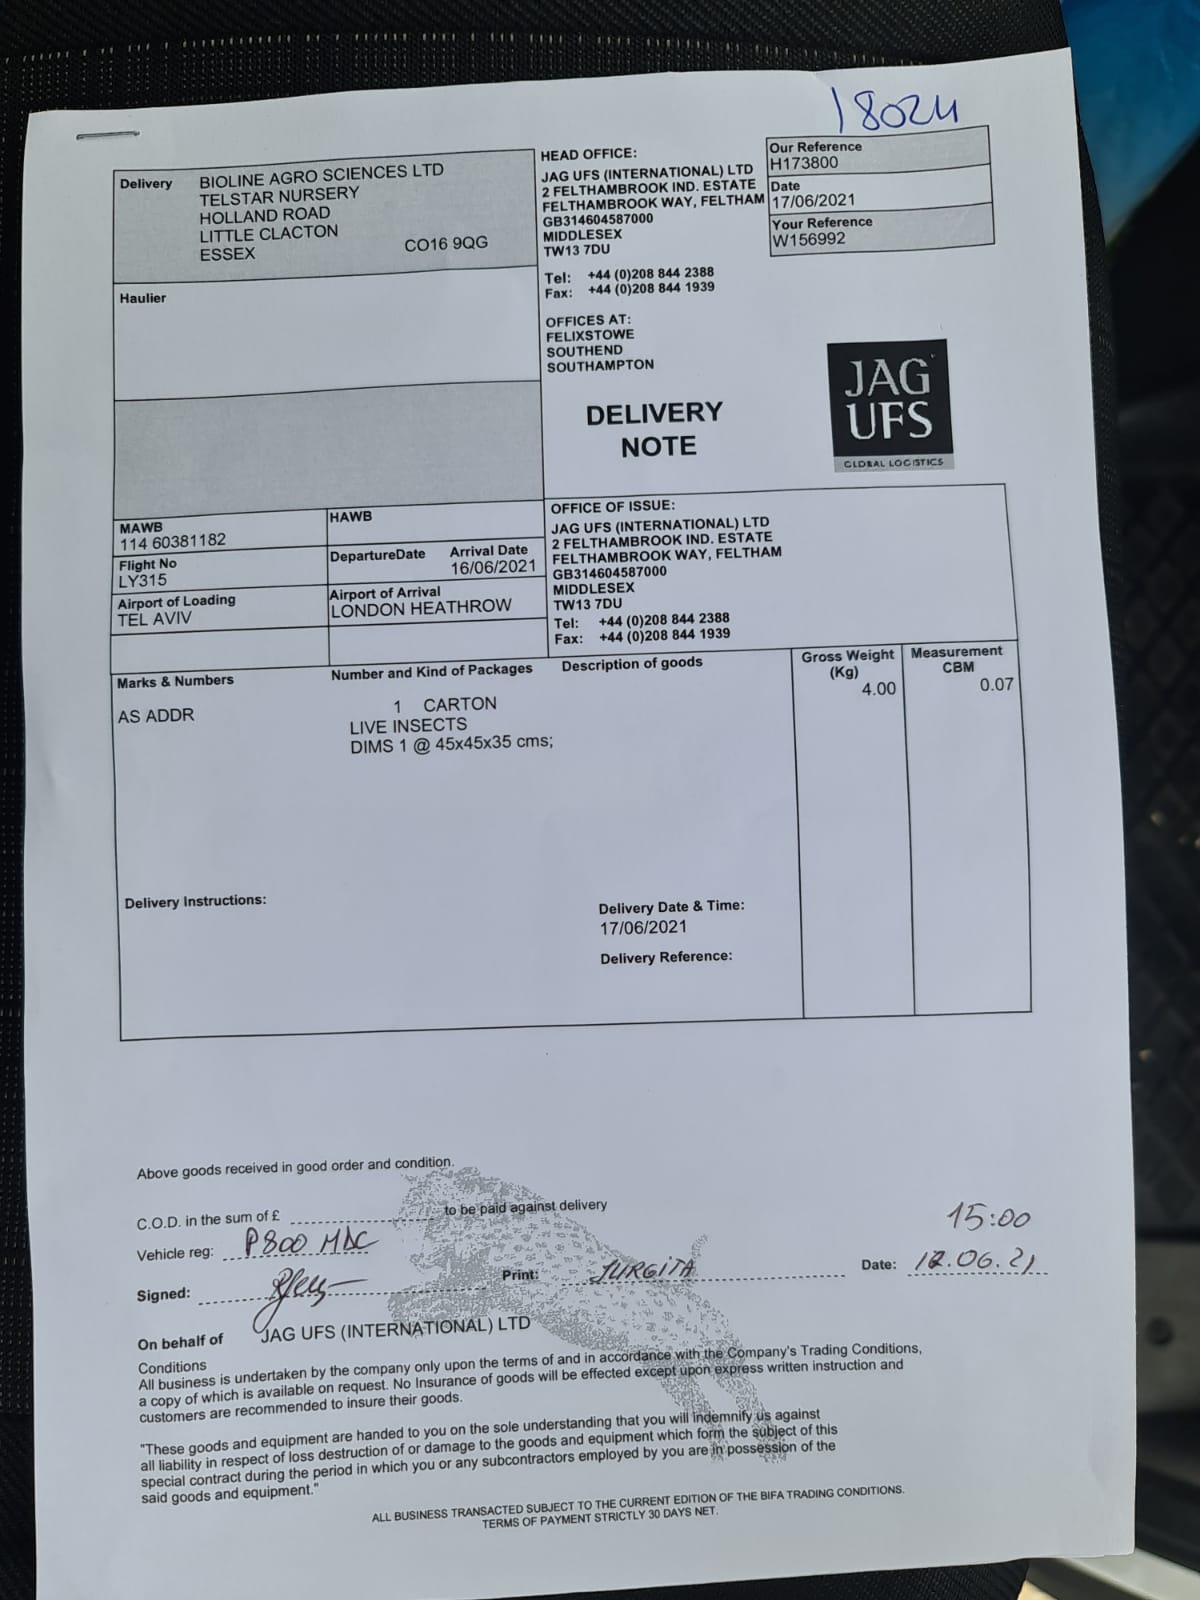 18024
Delivery
BIOLINE AGRO SCIENCES LTD
TELSTAR NURSERY
HOLLAND ROAD
LITTLE CLACTON
ESSEX CO16 9QG
Haulier
HEAD OFFICE:
JAG UFS (INTERNATIONAL) LTD
2 FELTHAMBROOK IND. ESTATE
FELTHAMBROOK WAY, FELTHAM
GB314604587000
MIDDLESEX
TW13 7DU
Tel: +44 (0)208 844 2388
Fax: +44 (0)208 844 1939
OFFICES AT:
FELIXSTOWE
SOUTHEND
SOUTHAMPTON
Our Reference
H173800
Date
17/06/2021
Your Reference
W156992
DELIVERY
NOTE
JAG
UFS
GLOBAL LOGISTICS
MAWB
114 60381182
HAWB
Flight No
LY315
DepartureDate
Arrival Date
16/06/2021
Airport of Loading
TEL AVIV
Airport of Arrival
LONDON HEATHROW
OFFICE OF ISSUE:
JAG UFS (INTERNATIONAL) LTD
2 FELTHAMBROOK IND. ESTATE
FELTHAMBROOK WAY, FELTHAM
GB314604587000
MIDDLESEX
TW13 7DU
Tel: +44 (0)208 844 2388
Fax: +44 (0)208 844 1939
Marks & Numbers
Number and Kind of Packages
Description of goods
Gross Weight
(Kg)
Measurement
CBM
AS ADDR
1 CARTON
4.00
0.07
LIVE INSECTS
DIMS 1 @ 45x45x35 cms;
Delivery Instructions:
Delivery Date & Time:
17/06/2021
Delivery Reference:
Above goods received in good order and condition.
C.O.D. in the sum of £ to be paid against delivery
Vehicle reg: P800 MDC
15:00
Signed:
Print: JURGITA
Date: .06.21
On behalf of JAG UFS (INTERNATIONAL) LTD
Conditions
All business is undertaken by the company only upon the terms of and in accordance with the Company's Trading Conditions,
a copy of which is available on request. No Insurance of goods will be effected except upon express written instruction and
customers are recommended to insure their goods.
"These goods and equipment are handed to you on the sole understanding that you will indemnify us against
all liability in respect of loss destruction of or damage to the goods and equipment which form the subject of this
special contract during the period in which you or any subcontractors employed by you are in possession of the
said goods and equipment."
ALL BUSINESS TRANSACTED SUBJECT TO THE CURRENT EDITION OF THE BIFA TRADING CONDITIONS.
TERMS OF PAYMENT STRICTLY 30 DAYS NET.